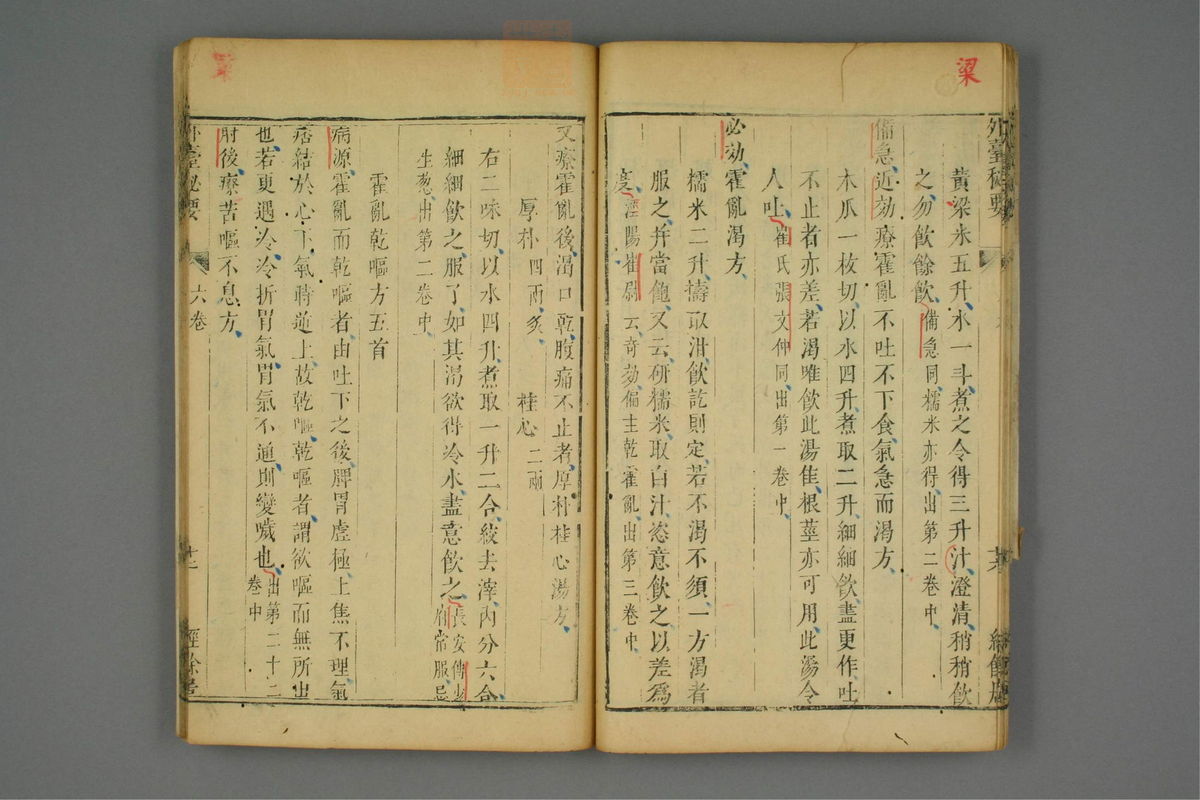 梁
外臺秘要
黃梁米五升水一斗煮之令得三升汁澄清稍稍飲
之勿飲餘飲備急同糯米亦得出第二卷中
備急近効療霍亂不吐不下食氣急而渴方
木爪一枚切以水四升煮取二升細細飲盡更作吐
不止者亦差若渴唯飲此湯佳根莖亦可用此湯令
人吐崔氏張文仲同出第一卷中
必効霍亂渴方
糯米二升擣取泔飲訖則定若不渴不須一方渴者
服之并當飽又云研糯米取白汁恣意飲之以差為
度涇陽崔尉云奇効偏主乾霍亂出第三卷中
又療霍亂後渴口乾腹痛不止者厚朴桂心湯方
厚朴四兩炙 桂心二兩
右二味切以水四升煮取一升二合絞去滓內分六合
細細飲之服了如其渴欲得冷水盡意飲之長安傳少
府常服忌
生葱出第二卷中
霍亂乾嘔方五首
病源霍亂而乾嘔者由吐下之後脾胃虛極上焦不理氣
痞結於心下氣時逆上故乾嘔乾嘔者謂欲嘔而無所出
也若更遇冷冷折胃氣胃氣不通則變噦也出第二十二
卷中
肘後療苦嘔不息方
外臺秘要
六卷
經餘居